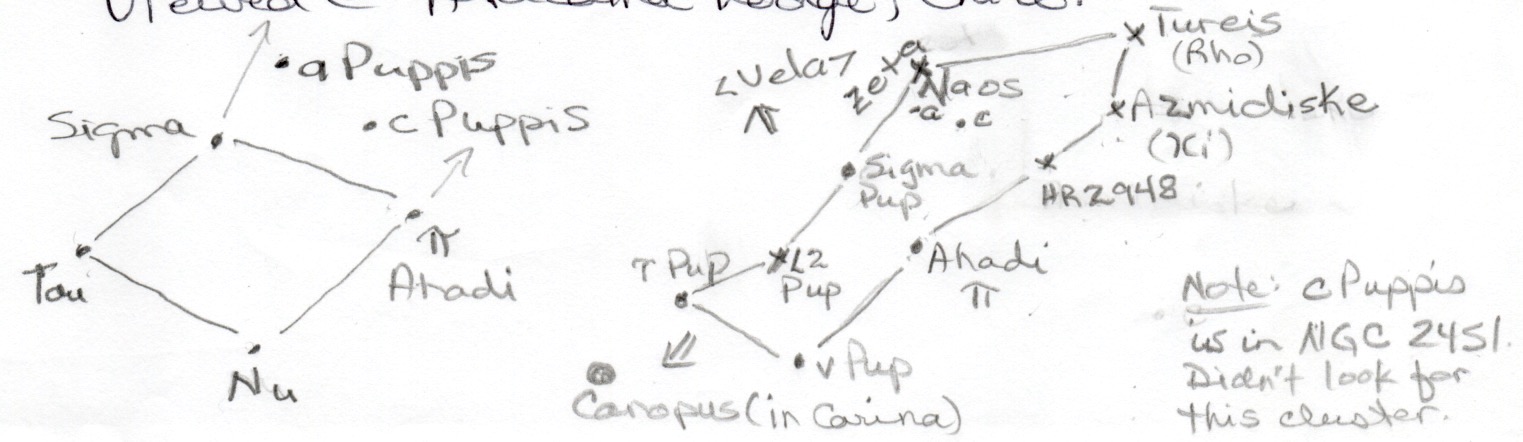 Lodge, Chile.
a Puppis
c Puppis
Sigma
π
Ahadi
Tau
Nu
<Vela>
zeta
Naos
a . c
Tureis
(Rho)
Azmidiske
(Xi)
HR2948
Sigma
Pup
τ Pup
L2
Pup
Ahadi
π
ν Pup
Canopus (in Carina)
Note: c Puppis
is in NGC 2451.
Didn't look for
this cluster.